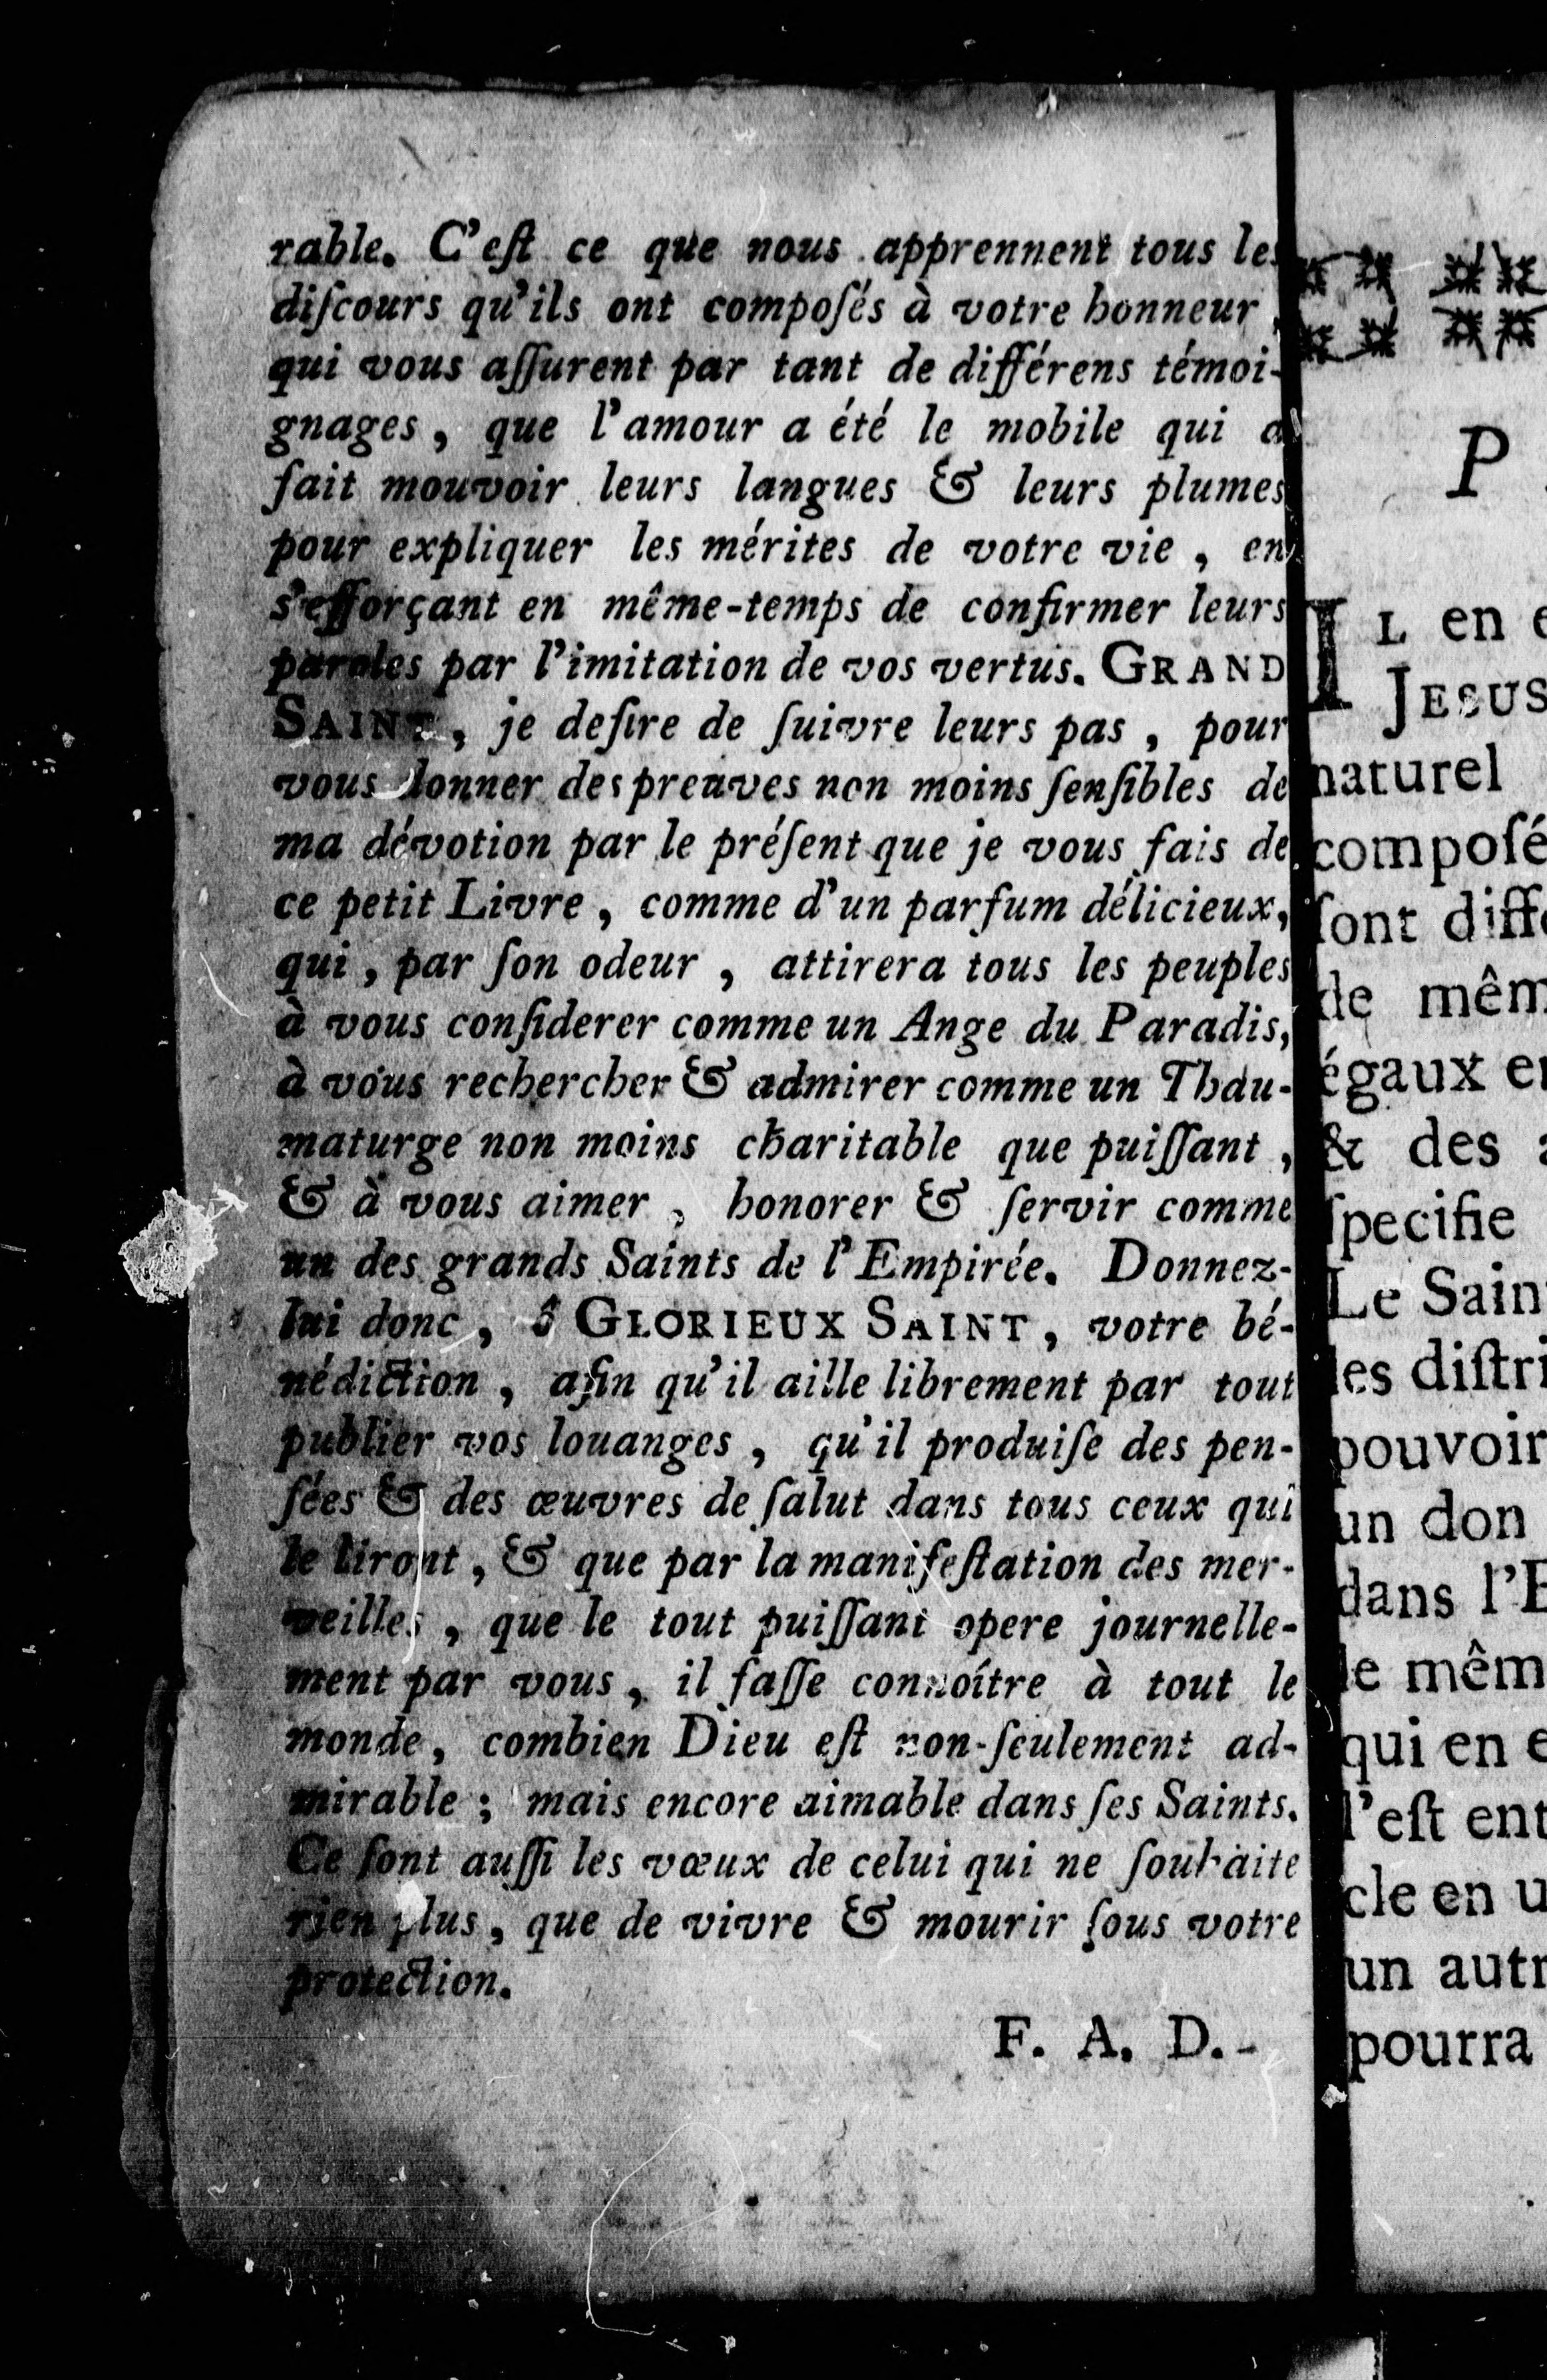 rable. C'eſt ce que nous apprennent tous les
diſcours qu'ils ont compoſés à votre honneur,
qui vous aſſurent par tant de différens témoi-
gnages, que l'amour a été le mobile qui a
fait mouvoir leurs langues & leurs plumes
pour expliquer les mérites de votre vie, en
s'efforçant en même-temps de confirmer leurs
paroles par l'imitation de vos vertus. GRAND
SAINT, je deſire de ſuivre leurs pas, pour
vous donner des preuves non moins ſenſibles de
ma dévotion par le préſent que je vous fais de
ce petit Livre, comme d'un parfum délicieux,
qui, par ſon odeur, attirera tous les peuples
à vous conſiderer comme un Ange du Paradis,
à vous rechercher & admirer comme un Thau-
maturge non moins charitable que puiſſant,
& à vous aimer, honorer & ſervir comme
un des grands Saints de l'Empirée. Donnez-
lui donc, ô GLORIEUX SAINT, votre bé-
nédiction, afin qu'il aille librement par tout
publier vos louanges, qu'il produiſe des pen-
ſées & des œuvres de ſalut dans tous ceux qui
le liront, & que par la manifeſtation des mer-
veilles, que le tout puiſſant opere journelle-
ment par vous, il faſſe connoître à tout le
monde, combien Dieu eſt non-ſeulement ad-
mirable; mais encore aimable dans ſes Saints.
Ce ſont auſſi les vœux de celui qui ne ſouhaite
rien plus, que de vivre & mourir ſous votre
protection.
F. A. D.
P
IL en
JESUS
naturel
compoſé
ſont diffe
de mêm
égaux en
& des
ſpecifie
Le Sain
les diſtri
pouvoir
un don
dans l'E
le mêm
qui en e
l'eſt ent
cle en u
un autr
pourra